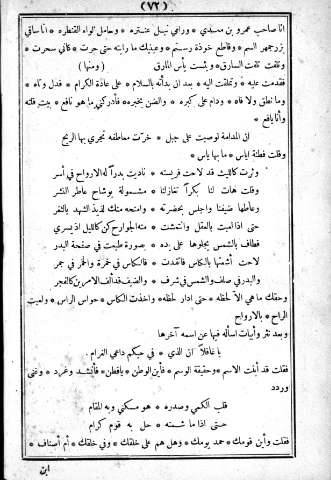 (٧٢)
انا صاحب عمرو بن معدي * ورامي نبل عنتره * وحامل لواء القنطره * انا ساقي
بزرجمهر السم * وقاطع خوذة رستم * وعينيك ما رايته حتى حرت * كاني سحرت *
وتلفت تلفت السارق * ويئست يأس المارق (ومنها)
فقدمت عليه * وتملقت اليه * بعد ان بدأنه بالسلام * على عادة الكرام * فدل وتاه *
وما نطق ولا فاه * ودام على كبره * والضن بخبره * فأدركني ما هو نافع * بيت قلته
وانا يافع *
ان المدامة لو صبت على جبل * خرت معاطفه تجري بها الريح
وقلت فطنة اياس * ما بها ياس *
وثرت كالليث قد لاحت فريسته * ناديت بدرا له الارواح في أسر
وقلت هات لنا بكرا تغازلنا * مشمولة بوشاح عاطر النشر
وعاطها ضيفنا واجلس بحضرته * وامنحه منك لذيذ الشهد بالثغر
حتى اذا لعبت بالعقل وانتهشت * منه الجوارح كن كالليل اذ يسري
فطاف بالشمس يجلوها على يده * بصورة طبعت في صفحة البدر
لاحت أشعتها بالكاس فاتقدت * فالكاس في خمرة والخمر في جمر
والبدر في صلف والشمس في شرف * والضيف قد ألف الامرين كالفجر
وحقك ما هي الا لحظه * حتى ادار لحظه * واخذت الكاس * حواس الراس * ولعبت
الراح * بالارواح
وبعد نثر وأبيات اسأله فيها عن اسمه آخرها
يا غافلا ان الذي * في حبكم داعي الغرام *
فقلت قد أبنت الاسم * وحقيقة الوسم * فأين الوطن * يا فطن * فأنشد وغرد * وغنى
وردد
قلب الكمي وصدره * هو مسكني وبه المقام
حتى اذا ما شئته * حل به قوم كرام
فقلت وأين قومك * حمد يومك * وهل هم على خلقك * وفي خلقك * أم أصناف *
ابن